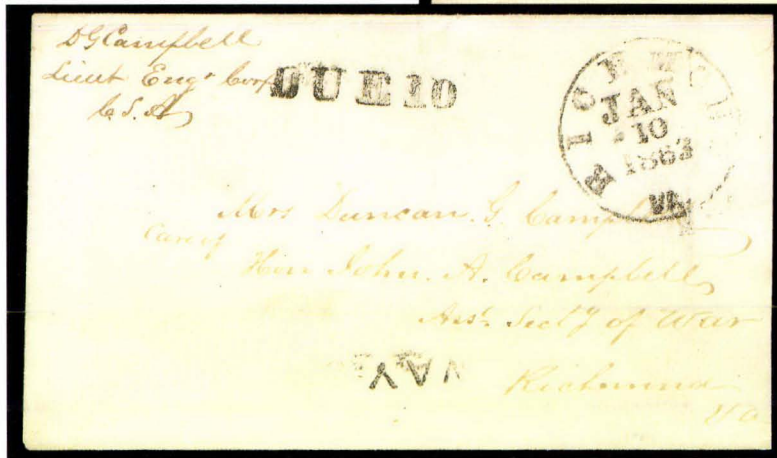 D G Campbell
Lieut Eng^r Corps
C. S. A
DUE 10
RICHMOND
JAN
10
1863
VA
Mrs Duncan. G. Campbell
Care of
Hon John. A. Campbell
Asst Secty of War
WAY
Richmond
Va